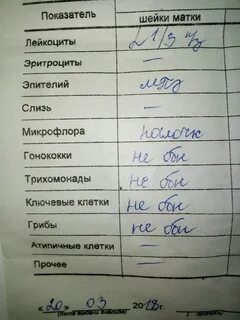 Показатель шейки матки
Лейкоциты 1/3 п/з
Эритроциты —
Эпителий
Слизь —
Микрофлора палочк
Гонококки не обн
Трихомонады не обн
Ключевые клетки не обн
Грибы не обн
Атипичные клетки —
Прочее —
«20» 03 2018 г.